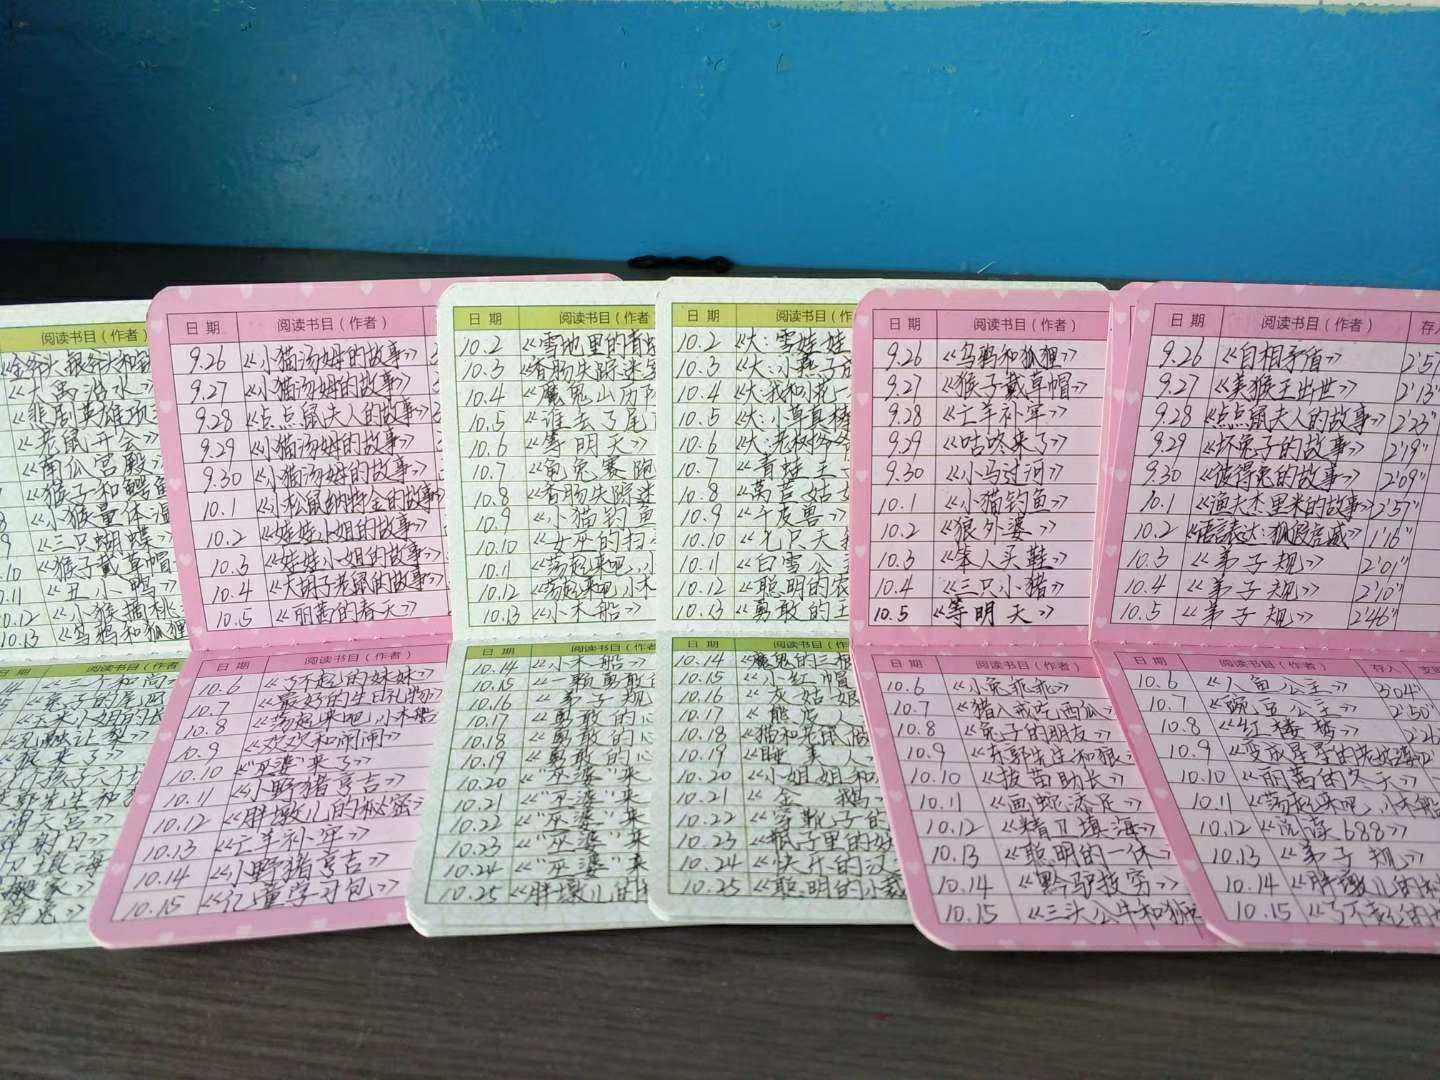 阅读书目（作者）
大禹治水》
老鼠开会》
南瓜宫殿》
猴子和鳄鱼
《小猴量体温
《三只蝴蝶》
《猴子戴草帽
《丑小鸭》
《小猴摘桃
10.13 《乌鸦和狐狸
日期 阅读书目（作者）
9.26 《小猫汤姆的故事》
9.27 《小猫汤姆的故事》
9.28 《点点鼠夫人的故事》
9.29 《小猫汤姆的故事》
9.30 《小猫汤姆的故事》
10.1 《小松鼠纳特金的故事》
10.2 《娃娃小姐的故事》
10.3 《娃娃小姐的故事》
10.4 《大胡子老鼠的故事》
10.5 《丽茜的春天》
日期 阅读书目（作者）
10.6 《了不起的妹妹》
10.7 《最好的生日礼物
10.8 《荡起来吧，小木船
10.9 《欢欢和闹闹》
10.10 《"巫婆"来了》
10.11 《小野猪亨吉》
10.12 《胖墩儿的秘密》
10.13 《亡羊补牢》
10.14 《小野猪亨吉》
10.15 《亿童学习包》
日期 阅读书目（作者
10.2 《雪地里的
10.3 《香肠失踪迷
10.4 《魔鬼山历
10.5 《谁丢了尾
10.6 《等明天》
10.7 《龟兔赛跑
10.8 《香肠失踪迷
10.9 《小猫钓鱼
10.10 《女巫的扫
10.11 《荡起来吧，小
10.12 《荡起来吧，小木
10.13 《小木船》
日期 阅读书目（作者
10.14 《小木船》
10.15 《一颗勇敢的
10.16 《弟子规》
10.17 《勇敢的心
10.18 《勇敢的心
10.19 《勇敢的心
10.20 《"巫婆"来
10.21 《"巫婆"来
10.22 《"巫婆"来
10.23 《"巫婆"来
10.24 《"巫婆"来
10.25 《胖墩儿的
日期 阅读书目（作者
10.2 《大：雪娃娃
10.3 《大：小燕子
10.4 《大：我和小花
10.5 《大：小草真棒
10.6 《大：老树爷爷
10.7 《青蛙王
10.8 《莴苣姑
10.9 《千皮兽》
10.10 《七只天
10.11 《白雪公
10.12 《聪明的农
10.13 《勇敢的王
日期 阅读书目（作者
10.14 《魔鬼的三根
10.15 《小红帽
10.16 《灰姑娘
10.17 《熊皮人
10.18 《猫和老鼠做
10.19 《睡美人
10.20 《小姐姐和
10.21 《金鹅》
10.22 《穿靴子的
10.23 《瓶子里的妖
10.24 《快乐的汉
10.25 《聪明的小裁
日期 阅读书目（作者）
9.26 《乌鸦和狐狸》
9.27 《猴子戴草帽》
9.28 《亡羊补牢》
9.29 《咕咚来了》
9.30 《小马过河》
10.1 《小猫钓鱼》
10.2 《狼外婆》
10.3 《笨人买鞋》
10.4 《三只小猪》
10.5 《等明天》
日期 阅读书目（作者）
10.6 《小兔乖乖》
10.7 《猪八戒吃西瓜》
10.8 《兔子的朋友》
10.9 《东郭先生和狼》
10.10 《拔苗助长》
10.11 《画蛇添足》
10.12 《精卫填海》
10.13 《聪明的一休》
10.14 《黔驴技穷》
10.15 《三头公牛和狮
日期 阅读书目（作者） 存入
9.26 《自相矛盾》 2'57
9.27 《美猴王出世》 2'13"
9.28 《点点鼠夫人的故事》 2'23"
9.29 《坏兔子的故事》 2'19"
9.30 《彼得兔的故事》 2'09"
10.1 《渔夫杰里米的故事》 2'57"
10.2 《语言表达：狐假虎威》 1'16"
10.3 《弟子规》 2'01"
10.4 《弟子规》 2'10"
10.5 《弟子规》 2'46"
日期 阅读书目（作者） 存入 支
10.6 《人鱼公主》 3'04"
10.7 《豌豆公主》 2'50"
10.8 《红楼梦》
10.9 《变成星星的
10.10 《丽茜的冬天》
10.11 《荡起来吧，小木船
10.12 《阅读688》
10.13 《弟子规》
10.14 《胖墩儿的
10.15 《了不起的